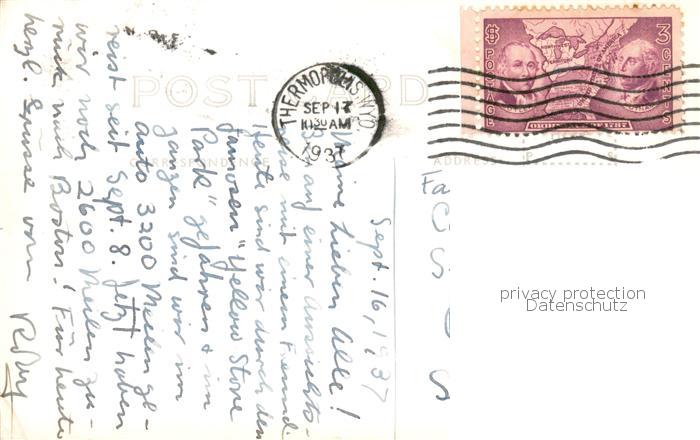 POST CARD
CORRESPONDENCE
ADDRESS
THERMOPOLIS, WYO.
SEP 17
10 30 AM
1937
$ POSTAGE
3 CENTS
Sept. 16, 1937
Meine lieben Alle!
auf einer Aussichts-
mit einem Freund.
Heute sind wir durch den
famosen "Yellow Stone
Park" gefahren & im
ganzen sind wir im
auto 3200 Meilen ge-
reist seit Sept. 8. Jetzt haben
wir noch 2600 Meilen zu-
rück nach Boston! Für heute
herzl. Grüsse vom
Fa
C
S
S
privacy protection
Datenschutz